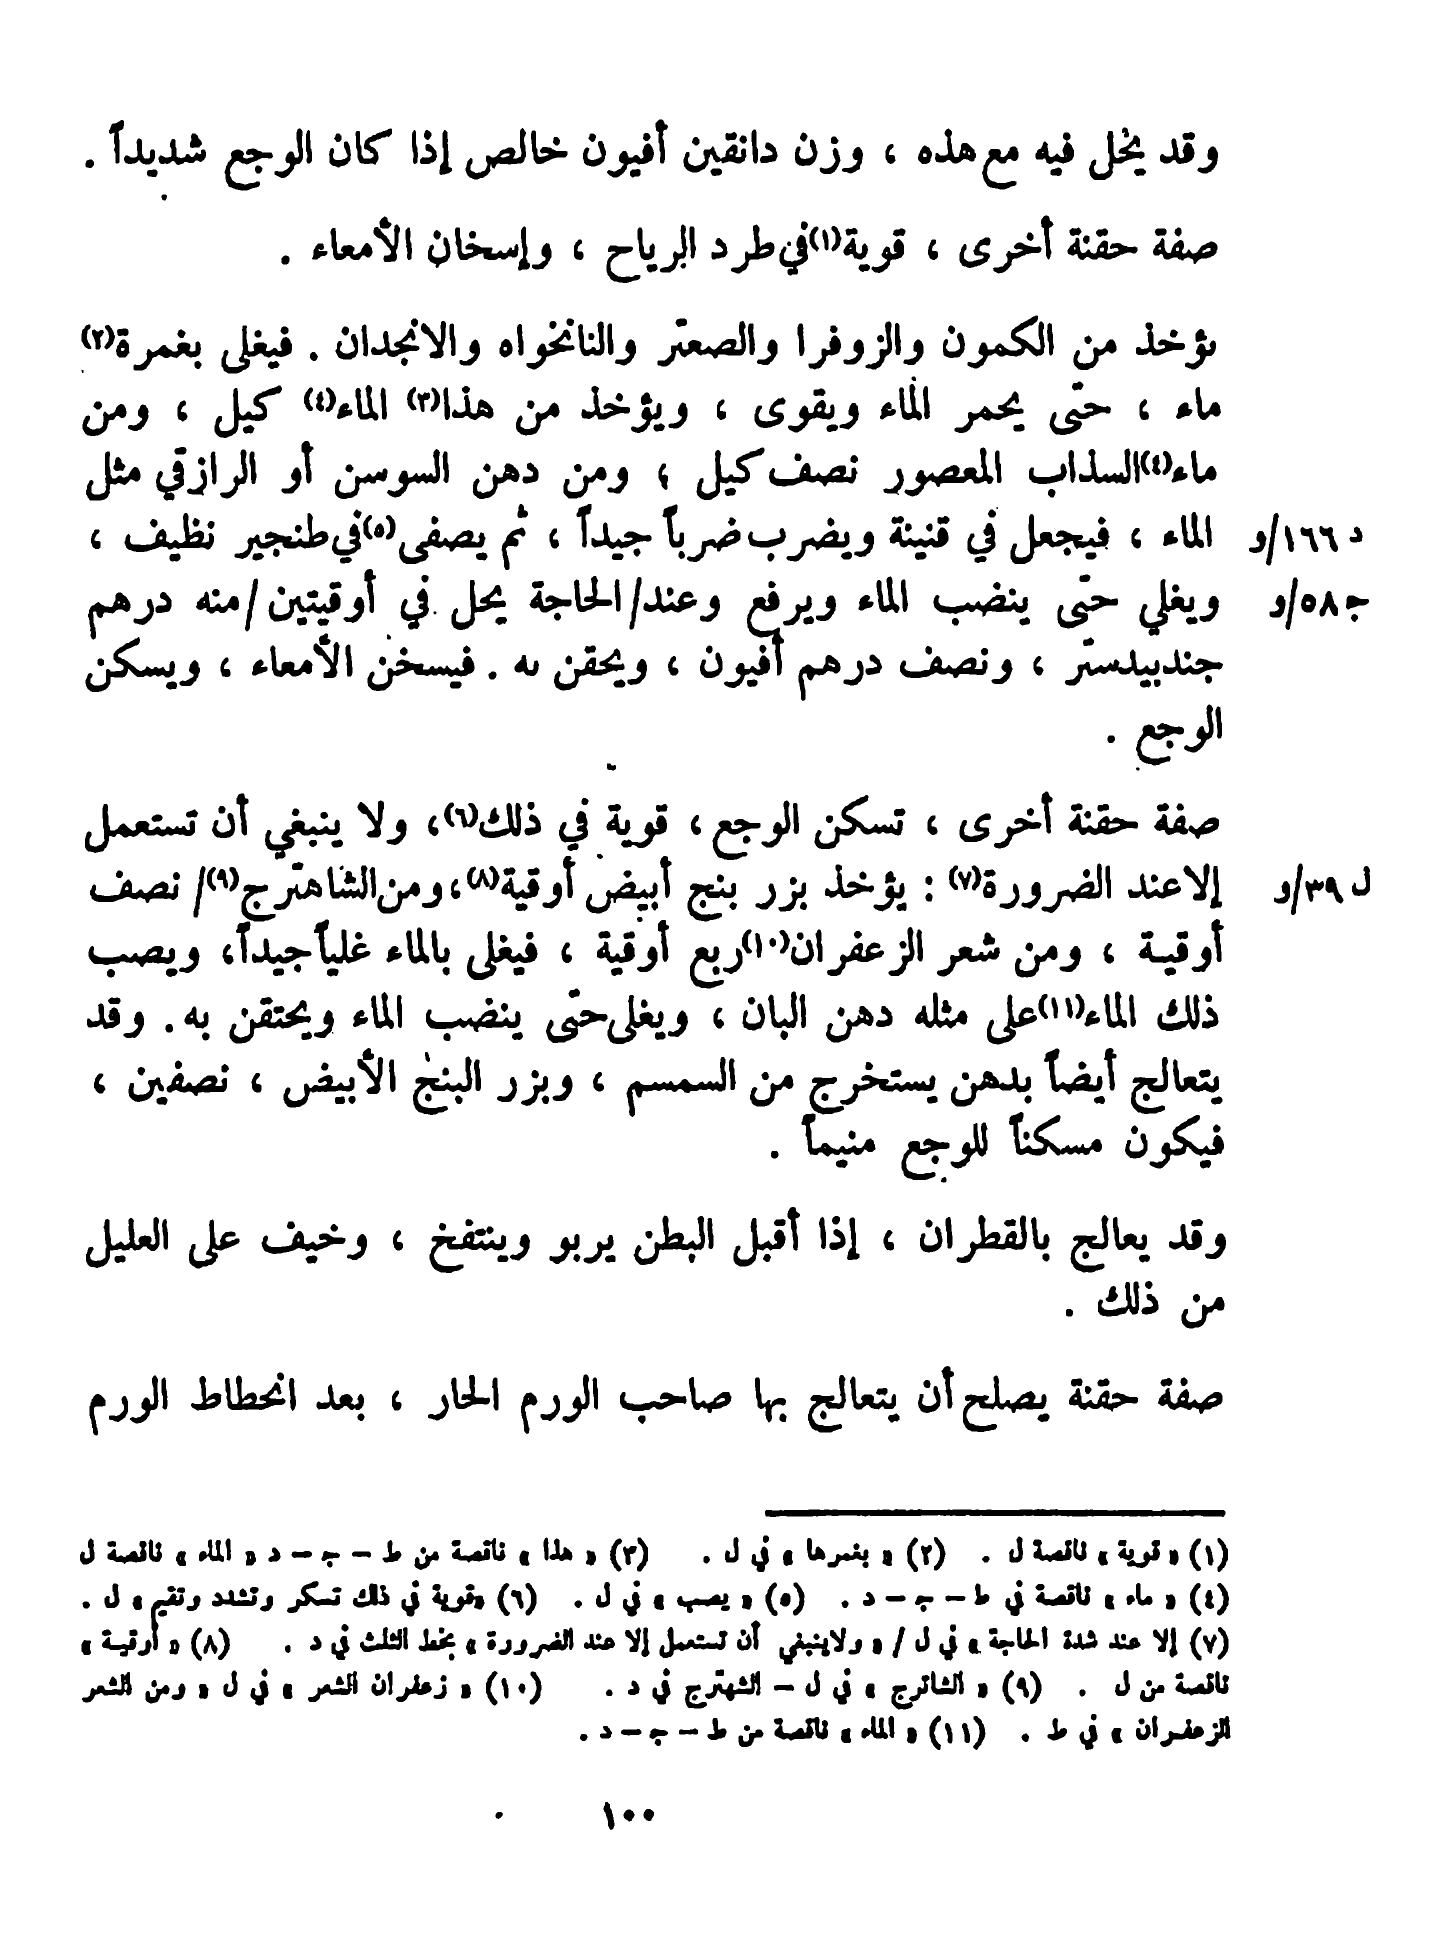 وقد يخل فيه مع هذه ، وزن دانقين أفيون خالص إذا كان الوجع شديداً .
صفة حقنة أخرى ، قوية(١)في طرد الرياح ، وإسخان الأمعاء .
يؤخذ من الكمون والزوفرا والصعتر والنانخواه والانجدان . فيغلى بغمرة(٢)
ماء ، حتى يحمر الماء ويقوى ، ويؤخذ من هذا(٣) الماء(٤) كيل ، ومن
ماء(٤)السذاب المعصور نصف كيل ؛ ومن دهن السوسن أو الرازقي مثل
الماء ، فيجعل في قنينة ويضرب ضرباً جيداً ، ثم يصفى(٥)في طنجير نظيف ، د ١٦٦/و
ويغلي حتى ينضب الماء ويرفع وعند/الحاجة يحل في أوقيتين/منه درهم ج ٥٨/و
جندبيدستر ، ونصف درهم أفيون ، ويحقن به . فيسخن الأمعاء ، ويسكن
الوجع .
صفة حقنة أخرى ، تسكن الوجع ، قوية في ذلك(٦)، ولا ينبغي أن تستعمل
إلا عند الضرورة(٧) : يؤخذ بزر بنج أبيض أوقية(٨)، ومن الشاهترج(٩)/ نصف ل ٣٩/و
أوقية ، ومن شعر الزعفران(١٠)ربع أوقية ، فيغلى بالماء غلياً جيداً، ويصب
ذلك الماء(١١)على مثله دهن البان ، ويغلى حتى ينضب الماء ويحتقن به . وقد
يتعالج أيضاً بدهن يستخرج من السمسم ، وبزر البنج الأبيض ، نصفين ،
فيكون مسكناً للوجع منيماً .
وقد يعالج بالقطران ، إذا أقبل البطن يربو وينتفخ ، وخيف على العليل
من ذلك .
صفة حقنة يصلح أن يتعالج بها صاحب الورم الحار ، بعد انحطاط الورم
(١) « قوية » ناقصة ل . (٢) « بغمرها » في ل . (٣) « هذا » ناقصة من ط – ج – د « الماء » ناقصة ل
(٤) « ماء » ناقصة في ط – ج – د . (٥) « يصب » في ل . (٦) «قوية في ذلك تسكر وتشدد وتقيم» ل .
(٧) إلا عند شدة الحاجة » في ل / « ولاينبغي أن تستعمل إلا عند الضرورة » بخط الثلث في د . (٨) « أوقية »
ناقصة من ل . (٩) « الشاترج » في ل – الشهترج في د . (١٠) « زعفران الشعر » في ل « ومن الشعر
الزعفران » في ط . (١١) « الماء » ناقصة من ط – ج – د .
١٠٠